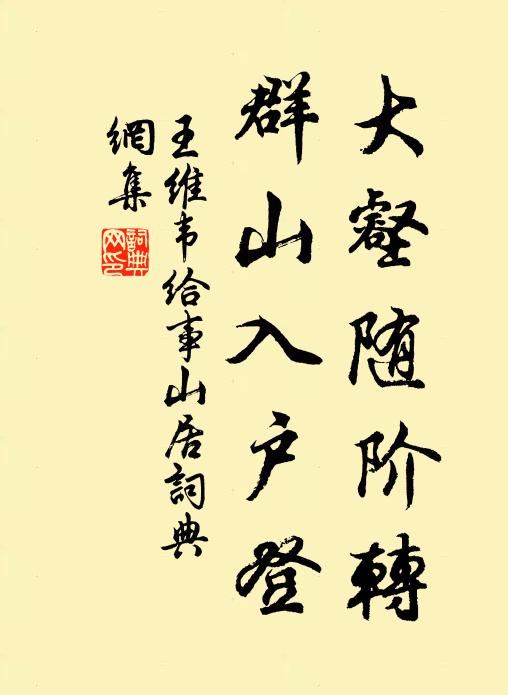 大壑随阶轉
群山入户登
王维韦给事山居詞典
網集
詞典
网印